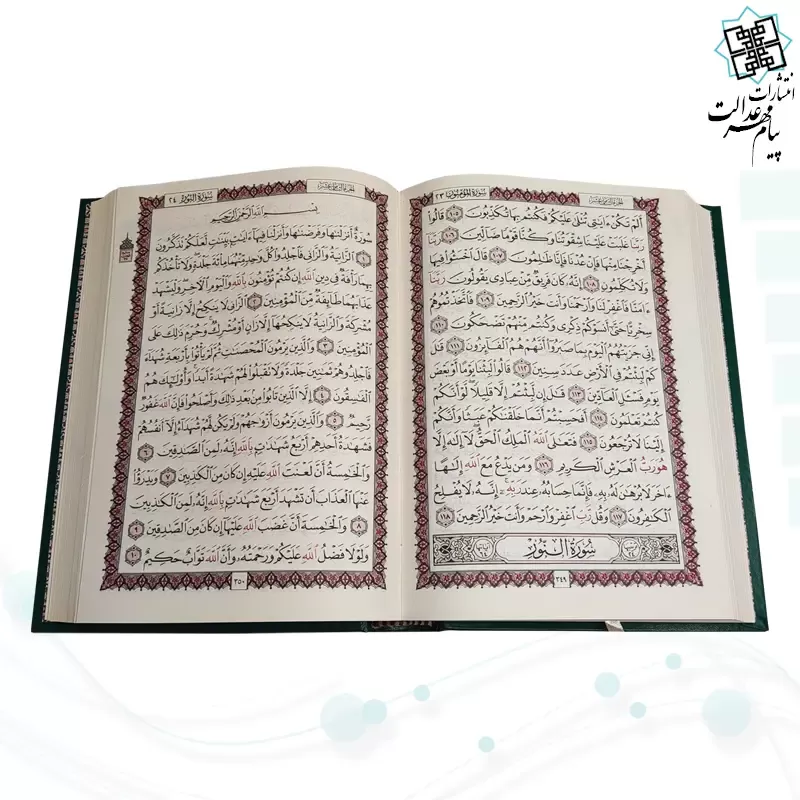 انتشارات
پیام مهر عدالت
الجزء الثامن عشر
سورة المؤمنون ٢٣
أَلَمْ تَكُنْ ءَايَٰتِى تُتْلَىٰ عَلَيْكُمْ فَكُنتُم بِهَا تُكَذِّبُونَ ١٠٥ قَالُوا۟
رَبَّنَا غَلَبَتْ عَلَيْنَا شِقْوَتُنَا وَكُنَّا قَوْمًا ضَآلِّينَ ١٠٦ رَبَّنَآ
أَخْرِجْنَا مِنْهَا فَإِنْ عُدْنَا فَإِنَّا ظَٰلِمُونَ ١٠٧ قَالَ ٱخْسَـُٔوا۟ فِيهَا
وَلَا تُكَلِّمُونِ ١٠٨ إِنَّهُۥ كَانَ فَرِيقٌ مِّنْ عِبَادِى يَقُولُونَ رَبَّنَآ
ءَامَنَّا فَٱغْفِرْ لَنَا وَٱرْحَمْنَا وَأَنتَ خَيْرُ ٱلرَّٰحِمِينَ ١٠٩ فَٱتَّخَذْتُمُوهُمْ
سِخْرِيًّا حَتَّىٰٓ أَنسَوْكُمْ ذِكْرِى وَكُنتُم مِّنْهُمْ تَضْحَكُونَ ١١٠
إِنِّى جَزَيْتُهُمُ ٱلْيَوْمَ بِمَا صَبَرُوٓا۟ أَنَّهُمْ هُمُ ٱلْفَآئِزُونَ ١١١ قَٰلَ
كَمْ لَبِثْتُمْ فِى ٱلْأَرْضِ عَدَدَ سِنِينَ ١١٢ قَالُوا۟ لَبِثْنَا يَوْمًا أَوْ بَعْضَ
يَوْمٍ فَسْـَٔلِ ٱلْعَآدِّينَ ١١٣ قَٰلَ إِن لَّبِثْتُمْ إِلَّا قَلِيلًا لَّوْ أَنَّكُمْ
كُنتُمْ تَعْلَمُونَ ١١٤ أَفَحَسِبْتُمْ أَنَّمَا خَلَقْنَٰكُمْ عَبَثًا وَأَنَّكُمْ
إِلَيْنَا لَا تُرْجَعُونَ ١١٥ فَتَعَٰلَى ٱللَّهُ ٱلْمَلِكُ ٱلْحَقُّ لَآ إِلَٰهَ إِلَّا
هُوَ رَبُّ ٱلْعَرْشِ ٱلْكَرِيمِ ١١٦ وَمَن يَدْعُ مَعَ ٱللَّهِ إِلَٰهًا
ءَاخَرَ لَا بُرْهَٰنَ لَهُۥ بِهِۦ فَإِنَّمَا حِسَابُهُۥ عِندَ رَبِّهِۦٓ إِنَّهُۥ لَا يُفْلِحُ
ٱلْكَٰفِرُونَ ١١٧ وَقُل رَّبِّ ٱغْفِرْ وَٱرْحَمْ وَأَنتَ خَيْرُ ٱلرَّٰحِمِينَ ١١٨
سُورَةُ ٱلنُّورِ
٣٤٩
الجزء الثامن عشر
سورة النور ٢٤
بِسْمِ ٱللَّهِ ٱلرَّحْمَٰنِ ٱلرَّحِيمِ
سُورَةٌ أَنزَلْنَٰهَا وَفَرَضْنَٰهَا وَأَنزَلْنَا فِيهَآ ءَايَٰتٍۭ بَيِّنَٰتٍ لَّعَلَّكُمْ تَذَكَّرُونَ
١ ٱلزَّانِيَةُ وَٱلزَّانِى فَٱجْلِدُوا۟ كُلَّ وَٰحِدٍ مِّنْهُمَا مِا۟ئَةَ جَلْدَةٍ وَلَا تَأْخُذْكُم
بِهِمَا رَأْفَةٌ فِى دِينِ ٱللَّهِ إِن كُنتُمْ تُؤْمِنُونَ بِٱللَّهِ وَٱلْيَوْمِ ٱلْءَاخِرِ وَلْيَشْهَدْ
عَذَابَهُمَا طَآئِفَةٌ مِّنَ ٱلْمُؤْمِنِينَ ٢ ٱلزَّانِى لَا يَنكِحُ إِلَّا زَانِيَةً أَوْ
مُشْرِكَةً وَٱلزَّانِيَةُ لَا يَنكِحُهَآ إِلَّا زَانٍ أَوْ مُشْرِكٌ وَحُرِّمَ ذَٰلِكَ عَلَى
ٱلْمُؤْمِنِينَ ٣ وَٱلَّذِينَ يَرْمُونَ ٱلْمُحْصَنَٰتِ ثُمَّ لَمْ يَأْتُوا۟ بِأَرْبَعَةِ شُهَدَآءَ
فَٱجْلِدُوهُمْ ثَمَٰنِينَ جَلْدَةً وَلَا تَقْبَلُوا۟ لَهُمْ شَهَٰدَةً أَبَدًا وَأُو۟لَٰٓئِكَ هُمُ
ٱلْفَٰسِقُونَ ٤ إِلَّا ٱلَّذِينَ تَابُوا۟ مِنۢ بَعْدِ ذَٰلِكَ وَأَصْلَحُوا۟ فَإِنَّ ٱللَّهَ غَفُورٌ
رَّحِيمٌ ٥ وَٱلَّذِينَ يَرْمُونَ أَزْوَٰجَهُمْ وَلَمْ يَكُن لَّهُمْ شُهَدَآءُ إِلَّآ أَنفُسُهُمْ
فَشَهَٰدَةُ أَحَدِهِمْ أَرْبَعُ شَهَٰدَٰتٍۭ بِٱللَّهِ إِنَّهُۥ لَمِنَ ٱلصَّٰدِقِينَ ٦
وَٱلْخَٰمِسَةُ أَنَّ لَعْنَتَ ٱللَّهِ عَلَيْهِ إِن كَانَ مِنَ ٱلْكَٰذِبِينَ ٧ وَيَدْرَؤُا۟
عَنْهَا ٱلْعَذَابَ أَن تَشْهَدَ أَرْبَعَ شَهَٰدَٰتٍۭ بِٱللَّهِ إِنَّهُۥ لَمِنَ ٱلْكَٰذِبِينَ
٨ وَٱلْخَٰمِسَةَ أَنَّ غَضَبَ ٱللَّهِ عَلَيْهَآ إِن كَانَ مِنَ ٱلصَّٰدِقِينَ ٩
وَلَوْلَا فَضْلُ ٱللَّهِ عَلَيْكُمْ وَرَحْمَتُهُۥ وَأَنَّ ٱللَّهَ تَوَّابٌ حَكِيمٌ ١٠
٣٥٠